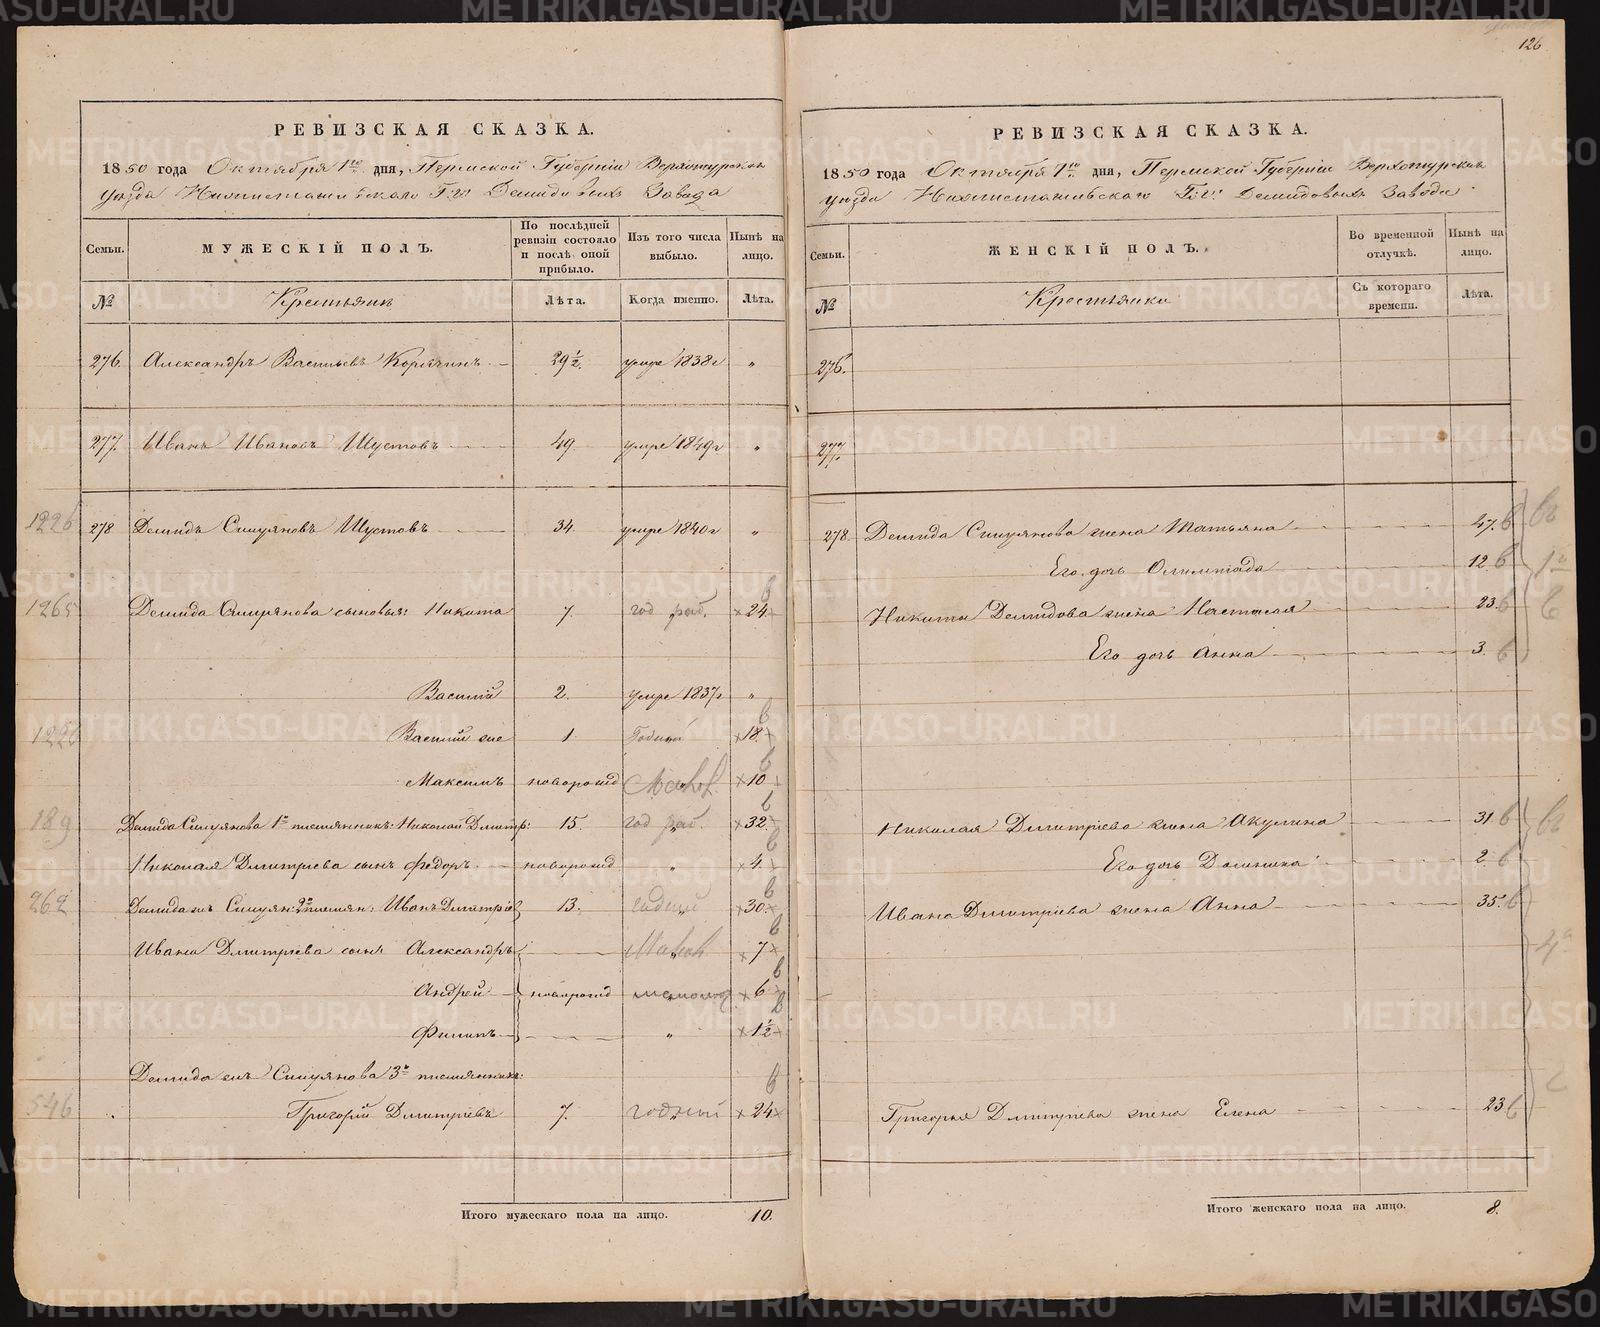 126
РЕВИЗСКАЯ СКАЗКА.
1850 года Октября 1го дня, Пермской Губерніи Верхотурскаго
уѣзда Нижнетагильскаго Г.г. Демидовыхъ Завода
Семьи.
МУЖЕСКІЙ ПОЛЪ.
По послѣдней ревизіи состояло и послѣ оной прибыло.
Изъ того числа выбыло.
Нынѣ на лицо.
№
Крестьянъ
Лѣта.
Когда именно.
Лѣта.
276. Александръ Васильевъ Корякинъ 29½. умре 1838г "
277. Иванъ Ивановъ Шустовъ 49 умре 1849г "
1226 278 Демидъ Сизуяновъ Шустовъ 34 умре 1840г "
1265 Демида Сизуянова сыновья: Никита 7. год раб. ×24× в
Василій 2. умре 1837г "
1226 Василій же 1 Годный ×18× в
Максимъ новорожд ×10× в
189 Демида Сизуянова 1й племянникъ: Николай Дмитр: 15. год раб. ×32× в
Николая Дмитріева сынъ Федоръ новорожд " ×4× в
262 Демида жъ Сизуян: 2й племян: Иванъ Дмитріев 13. годный ×30× в
Ивана Дмитріева сыны Александръ Малол ×7× в
Андрей новорожд ×6× в
Филипъ " ×1½× в
Демида жъ Сизуянова 3й племянникъ:
546 Григорій Дмитріевъ 7. годный ×24× в
Итого мужескаго пола на лицо. 10.
РЕВИЗСКАЯ СКАЗКА.
1850 года Октября 1го дня, Пермской Губерніи Верхотурскаго
уѣзда Нижнетагильскаго Г.г. Демидовыхъ Завода
Семьи.
ЖЕНСКІЙ ПОЛЪ.
Во временной отлучкѣ.
Нынѣ на лицо.
№
Крестьянки
Съ котораго времени.
Лѣта.
276.
277.
278. Демида Сизуянова жена Татьяна 47. в
Его дочь Олимпіада 12 в
Никиты Демидова жена Настасья 23. в
Его дочь Анна 3. в
Николая Дмитріева жена Акулина 31 в
Его дочь Домника 2. в
Ивана Дмитріева жена Анна 35. в
Григорья Дмитріева жена Елена 23 в
Итого женскаго пола на лицо. 8.
METRIKI.GASO-URAL.RU